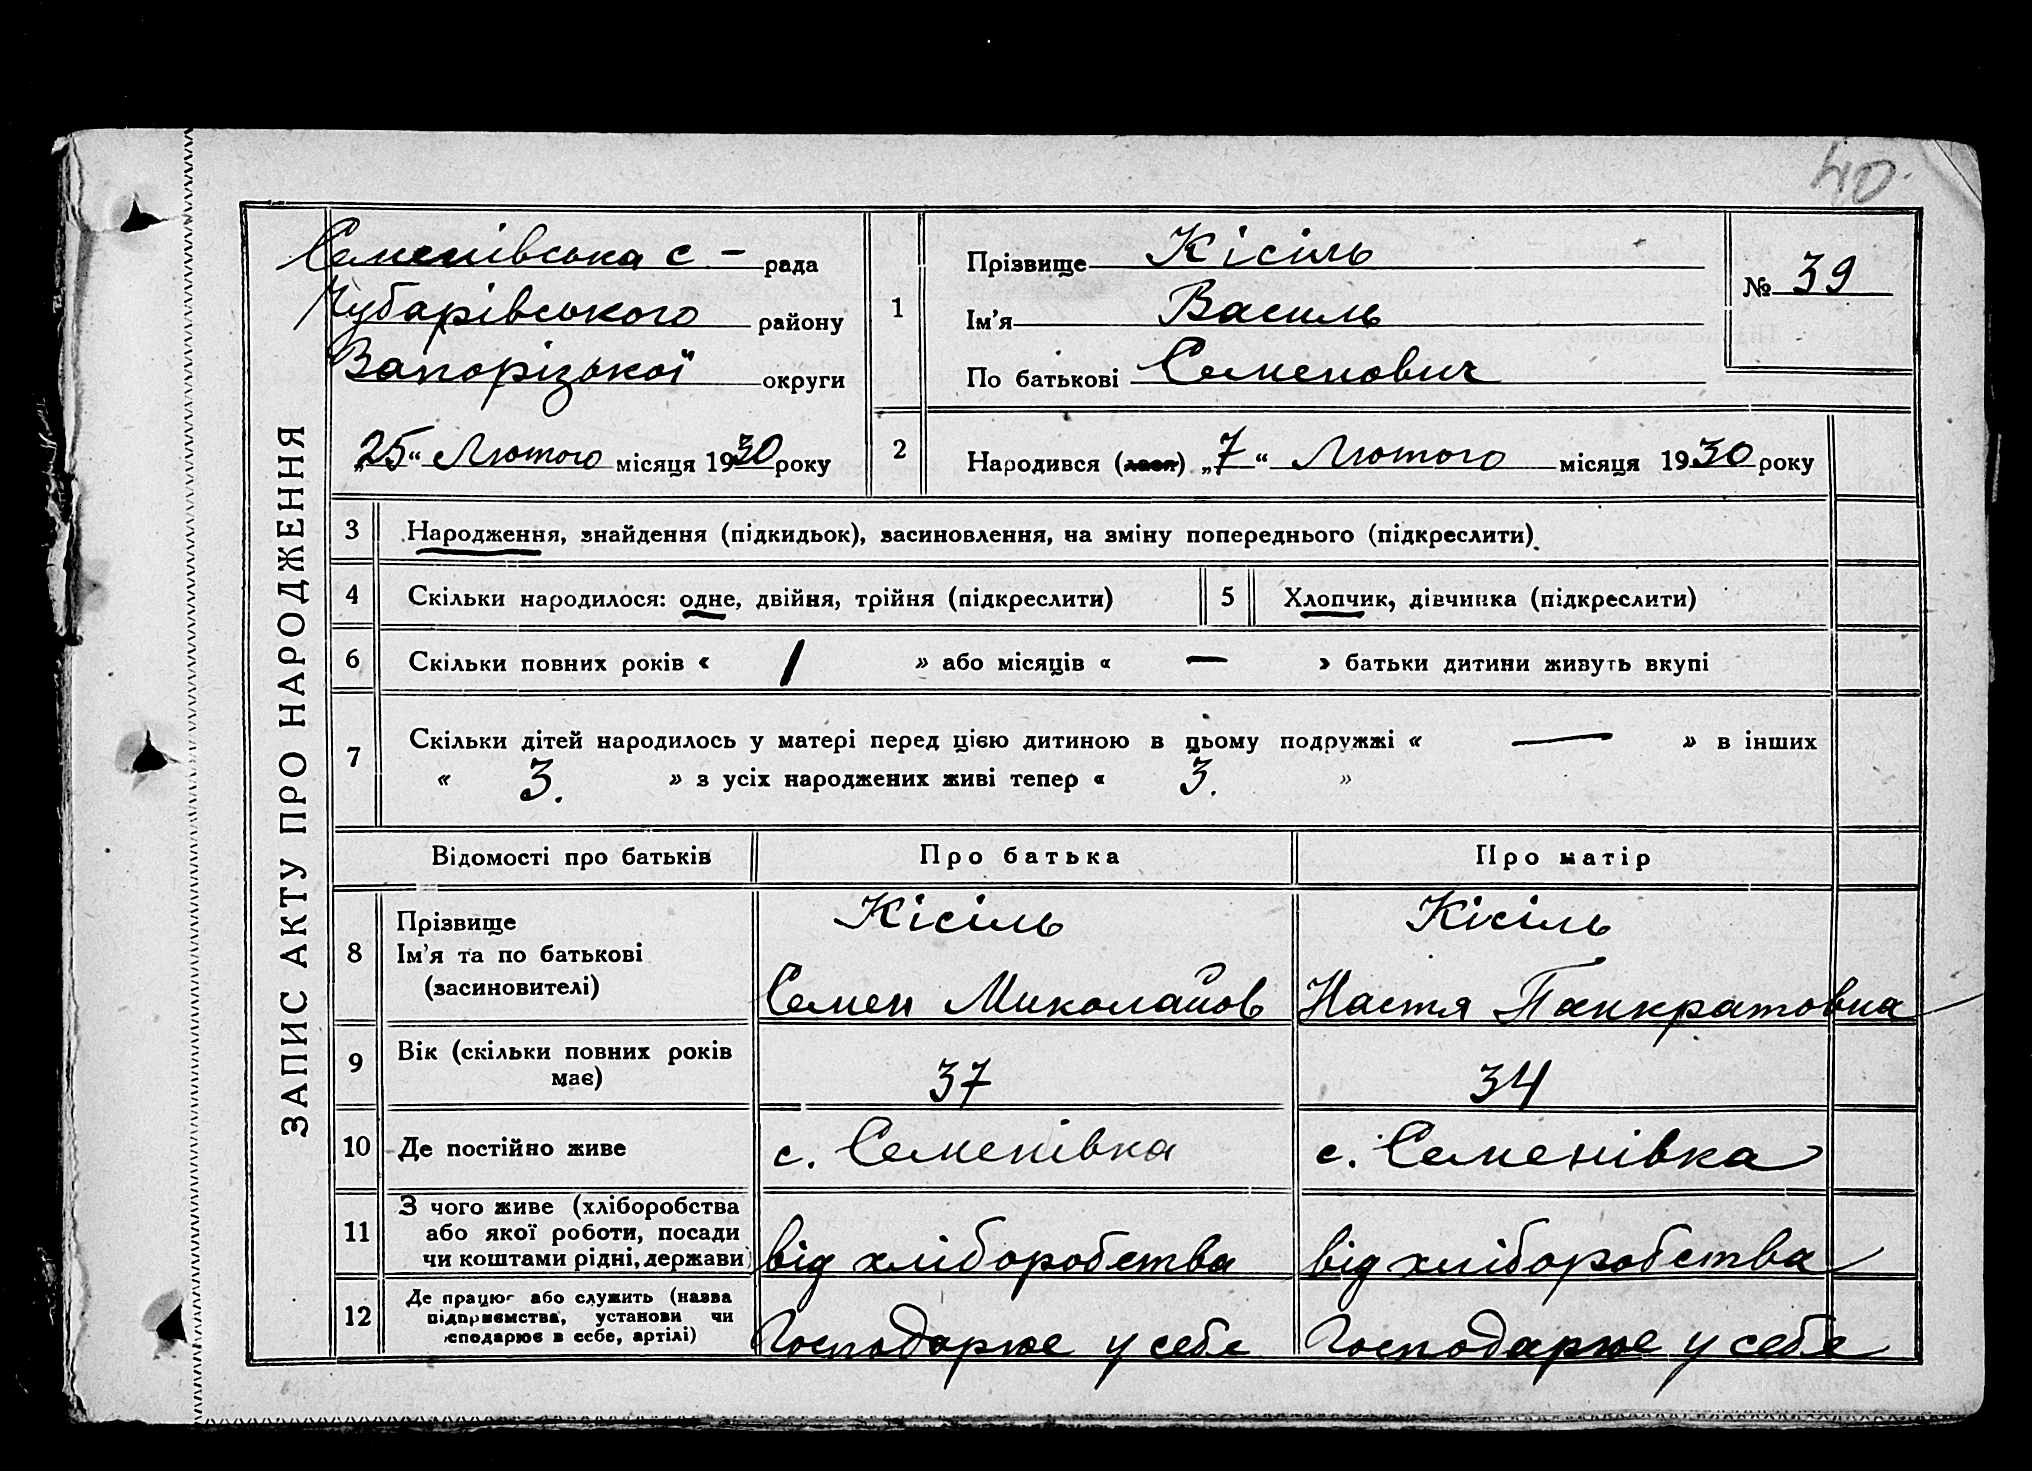 40.
Семенівська с - рада
Чубарівського району
Запорізької округи
„25“ Лютого місяця 1930 року
1
Прізвище Кісіль
Ім'я Василь
По батькові Семенович
№ 39
2
Народився (лася) „7“ Лютого місяця 1930 року
ЗАПИС АКТУ ПРО НАРОДЖЕННЯ
3 Народження, знайдення (підкидьок), засиновлення, на зміну попереднього (підкреслити).
4 Скільки народилося: одне, двійня, трійня (підкреслити)
5 Хлопчик, дівчинка (підкреслити)
6 Скільки повних років « 1 » або місяців « — » батьки дитини живуть вкупі
7 Скільки дітей народилось у матері перед цією дитиною в цьому подружжі « — » в інших
« 3. » з усіх народжених живі тепер « 3. »
Відомості про батьків Про батька Про матір
8 Прізвище
Ім'я та по батькові
(засиновителі)
Кісіль
Семен Миколайов
Кісіль
Настя Панкратовна
9 Вік (скільки повних років
має)
37
34
10 Де постійно живе
с. Семенівка
с. Семенівка
11 З чого живе (хліборобства
або якої роботи, посади
чи коштами рідні, держави)
від хліборобства
від хліборобства
12 Де працює або служить (назва
підприємства, установи чи
господарює в себе, артілі)
Господарює у себе
Господарює у себе